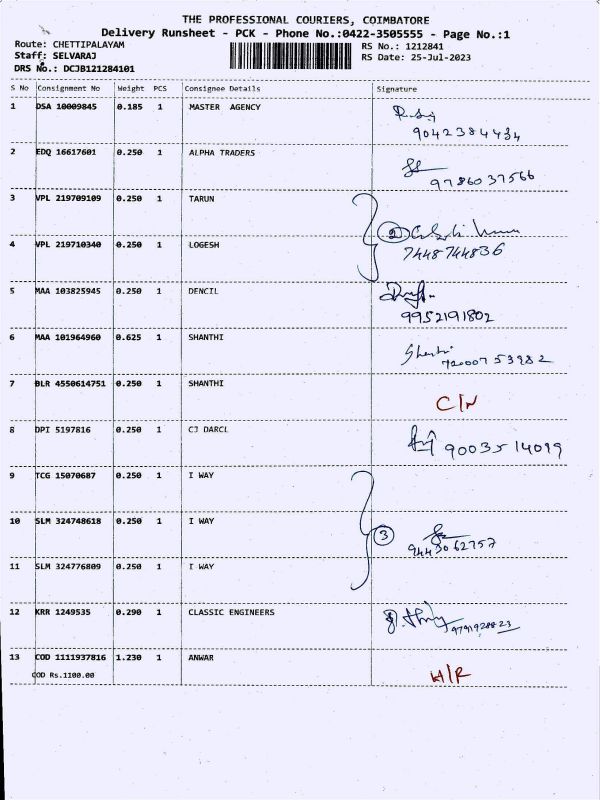 THE PROFESSIONAL COURIERS, COIMBATORE
Delivery Runsheet - PCK - Phone No.:0422-3505555 - Page No.:1
Route: CHETTIPALAYAM RS No.: 1212841
Staff: SELVARAJ RS Date: 25-Jul-2023
DRS No.: DCJB121284101
S No Consignment No Weight PCS Consignee Details Signature
1 DSA 10009845 0.185 1 MASTER AGENCY
9042384434
2 EDQ 16617601 0.250 1 ALPHA TRADERS
9786037566
3 VPL 219709109 0.250 1 TARUN
2
4 VPL 219710340 0.250 1 LOGESH
7448744836
5 MAA 103825945 0.250 1 DENCIL
9952191802
6 MAA 101964960 0.625 1 SHANTHI
Shanthi
7 BLR 4550614751 0.250 1 SHANTHI
C/N
8 DPI 5197816 0.250 1 CJ DARCL
9003514099
9 TCG 15070687 0.250 1 I WAY
10 SLM 324748618 0.250 1 I WAY
3
9443062757
11 SLM 324776809 0.250 1 I WAY
12 KRR 1249535 0.290 1 CLASSIC ENGINEERS
9791928823
13 COD 1111937816 1.230 1 ANWAR
COD Rs.1100.00
H/R